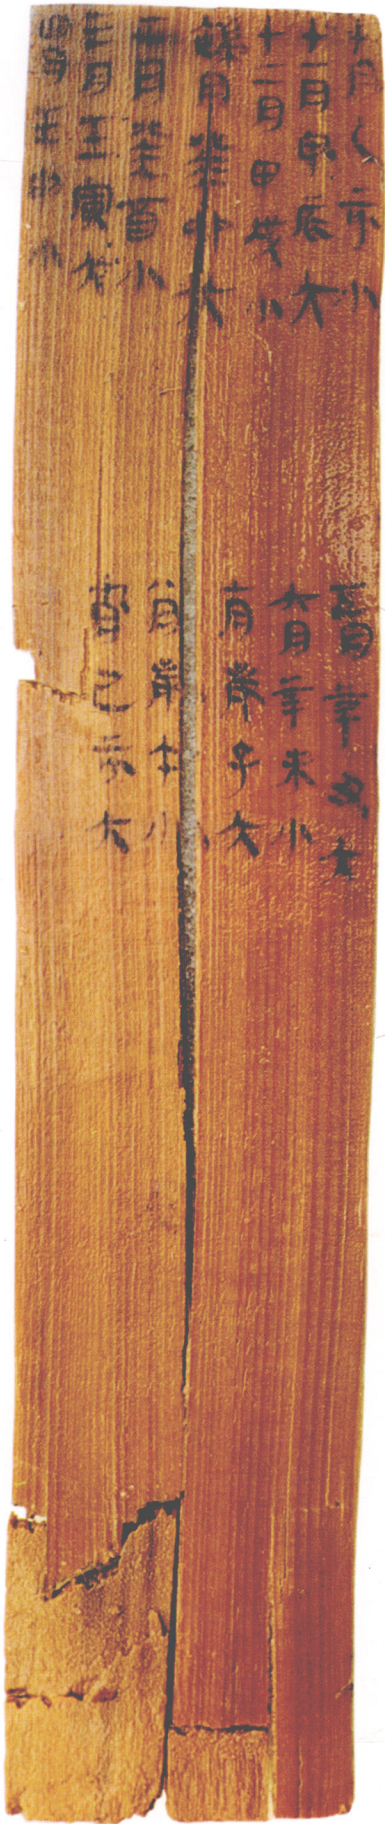 十月乙亥小
十一月甲辰大
十二月甲戌小
端月癸卯大
二月癸酉小
三月壬寅大
四月壬申小
五月辛丑大
六月辛未小
七月庚子大
八月庚午小
九月己亥大